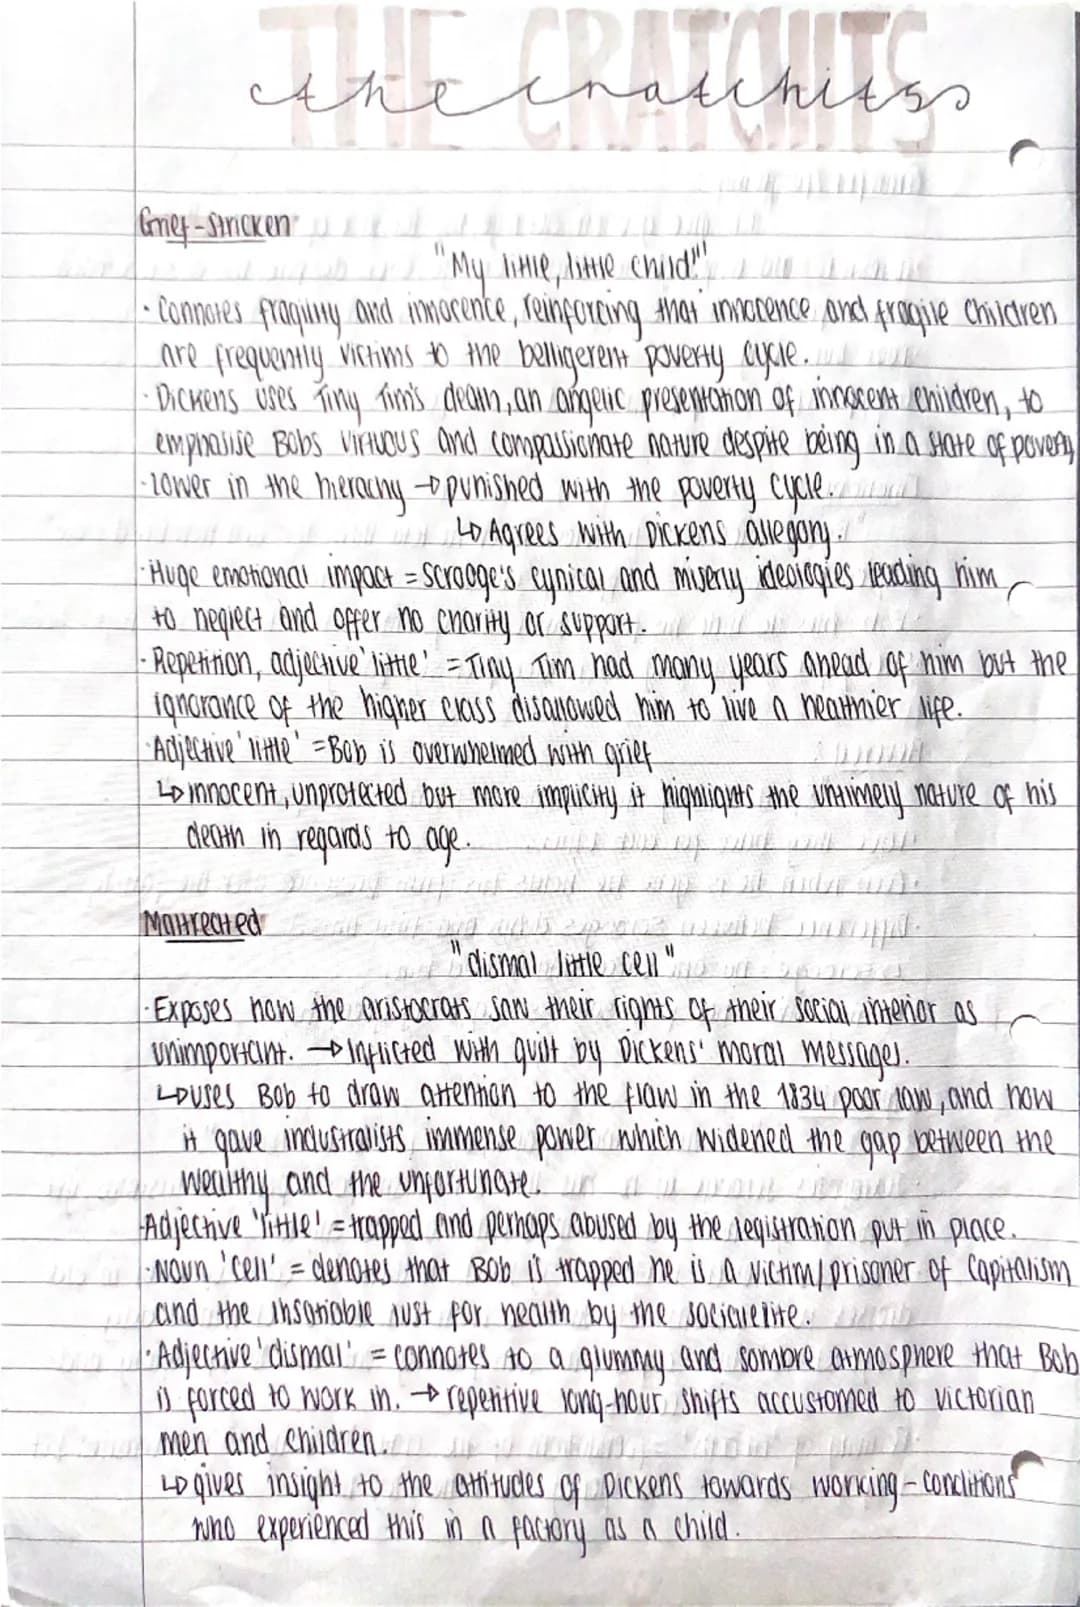 THE CRATCHITS
the cratchits
Grief-stricken
"My little, little child!"
· Connotes fragility and innocence, reinforcing that innocence and fragile children
are frequently victims to the belligerent poverty cycle.
· Dickens uses Tiny Tim's death, an angelic presentation of innocent children, to
emphasise Bobs virtuous and compassionate nature despite being in a state of poverty
· Lower in the hierachy → punished with the poverty cycle.
↳ Agrees with Dickens allegory.
· Huge emotional impact = Scrooge's cynical and miserly ideologies leading him
to neglect and offer no charity or support.
· Repetition, adjective 'little' = Tiny Tim had many years ahead of him but the
ignorance of the higher class disallowed him to live a healthier life.
· Adjective 'little' = Bob is overwhelmed with grief
↳ innocent, unprotected but more implicity it highlights the untimely nature of his
death in regards to age.
Maltreated
"dismal little cell"
· Exposes how the aristocrats saw their rights of their social inferior as
unimportant. → Inflicted with guilt by Dickens' moral messages.
↳ uses Bob to draw attention to the flaw in the 1834 poor law, and how
it gave industralists immense power which widened the gap between the
wealthy and the unfortunate.
· Adjective 'little' = trapped and perhaps abused by the legistration put in place.
· Noun 'cell' = denotes that Bob is trapped he is a victim/prisoner of Capitalism
and the insatiable lust for wealth by the socialelite.
· Adjective 'dismal' = connotes to a glummy and sombre atmosphere that Bob
is forced to work in. → repetitive long-hour shifts accustomed to Victorian
men and children.
↳ gives insight to the attitudes of Dickens towards working-conditions
who experienced this in a factory as a child.